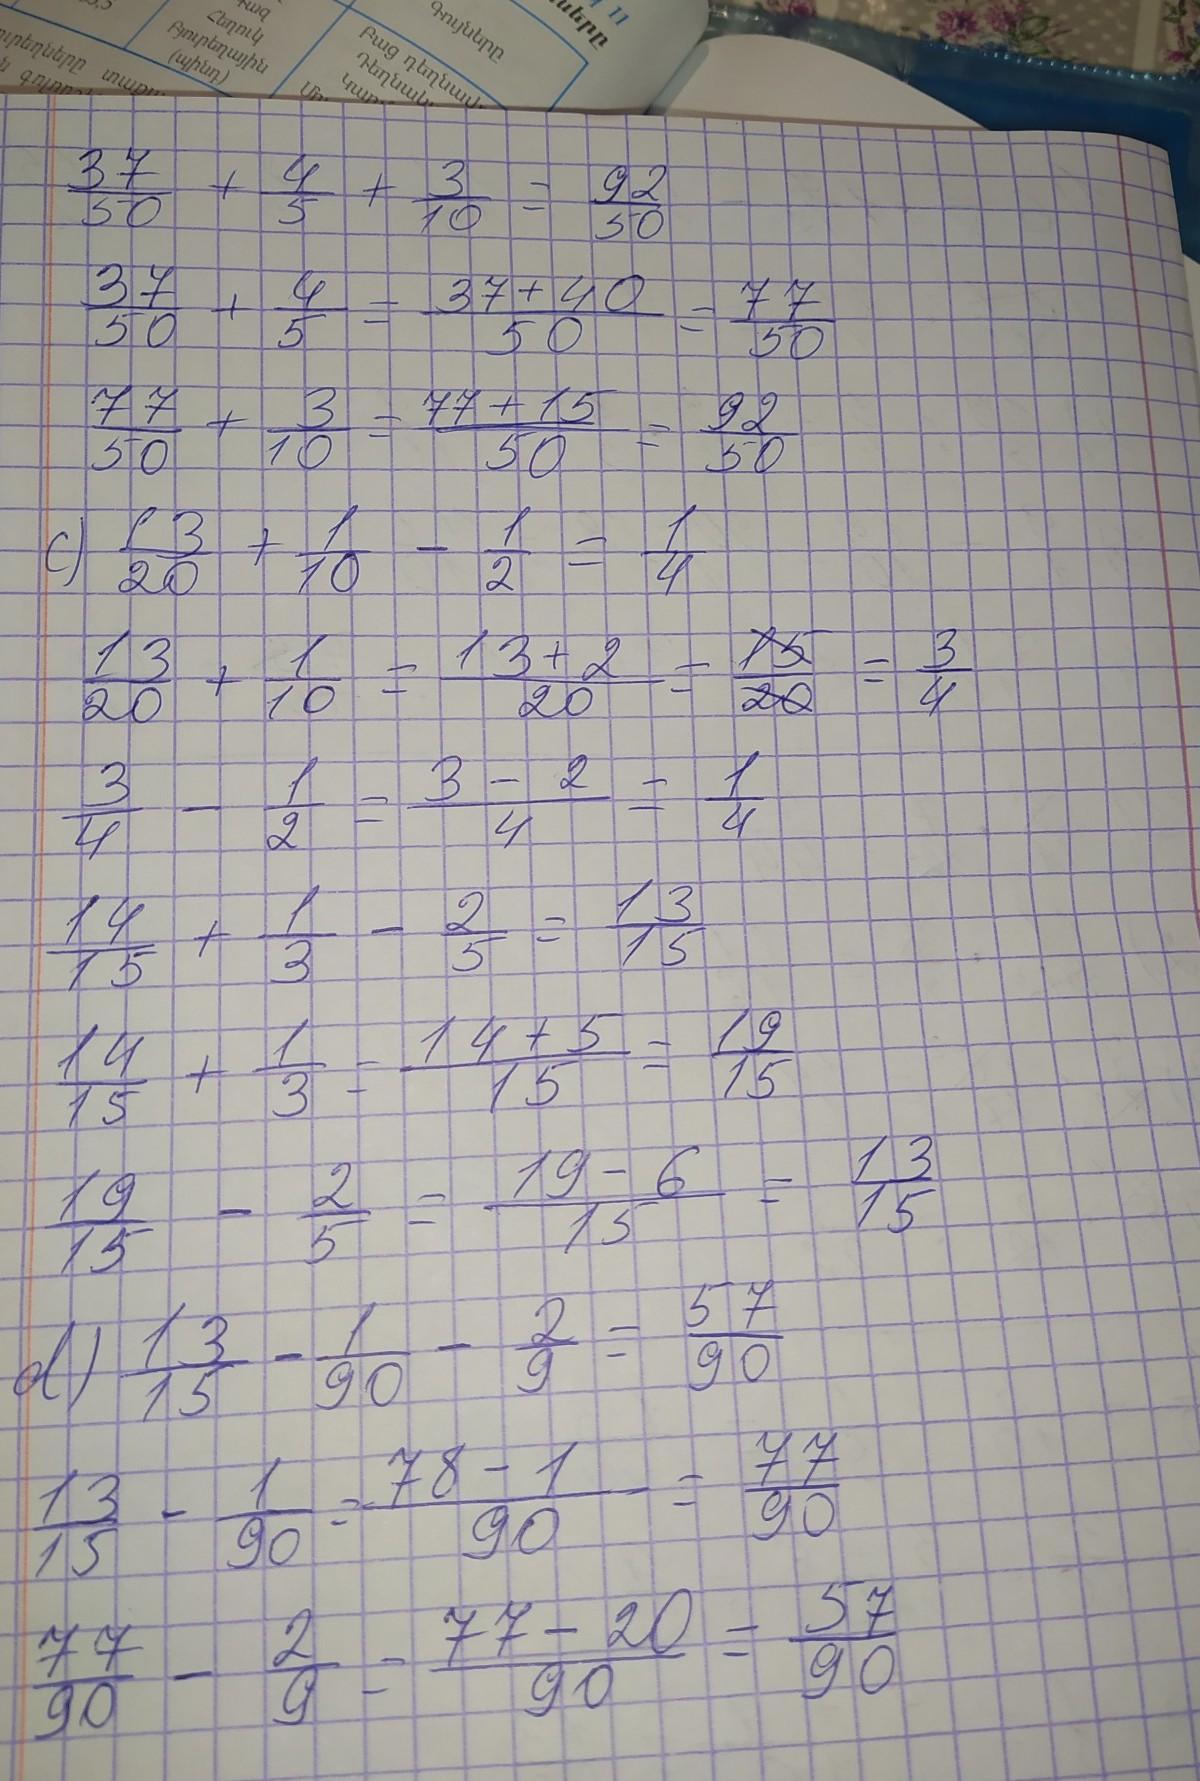 գազ
Հեղուկ
Բյուրեղային
(պինդ)
Գույները
Բաց դեղնավ
37/50 + 4/5 + 3/10 = 92/50
37/50 + 4/5 = 37+40/50 = 77/50
77/50 + 3/10 = 77+15/50 = 92/50
c) 13/20 + 1/10 - 1/2 = 1/4
13/20 + 1/10 = 13+2/20 = 15/20 = 3/4
3/4 - 1/2 = 3-2/4 = 1/4
14/15 + 1/3 - 2/5 = 13/15
14/15 + 1/3 = 14+5/15 = 19/15
19/15 - 2/5 = 19-6/15 = 13/15
d) 13/15 - 1/90 - 2/9 = 57/90
13/15 - 1/90 = 78-1/90 = 77/90
77/90 - 2/9 = 77-20/90 = 57/90